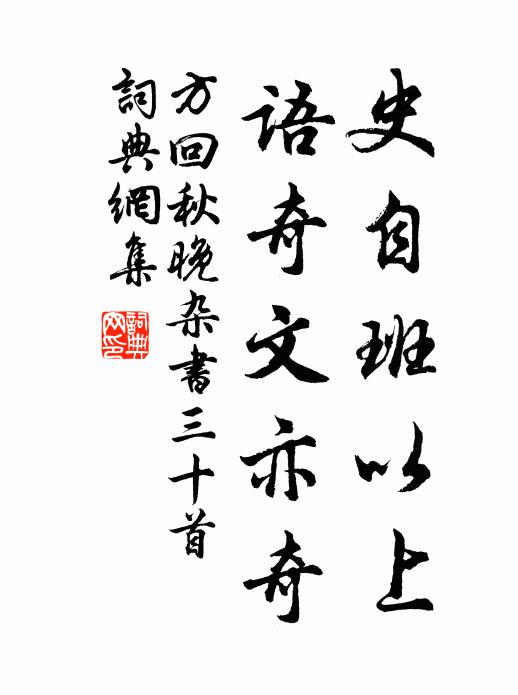 史自班以上
語奇文亦奇
方回秋晚杂書三十首
詞典網集
詞典网印